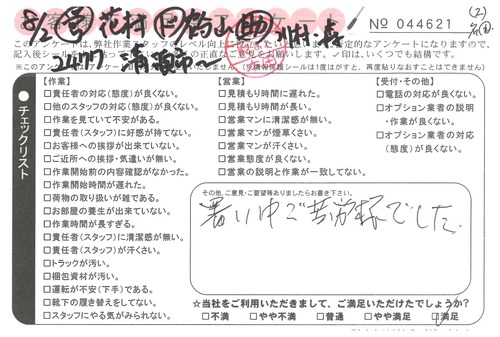 No 044621
【作業】
□責任者の対応(態度)が良くない。
□他のスタッフの対応(態度)が良くない。
□作業を見ていて不安がある。
□責任者(スタッフ)に好感が持てない。
□お客様への挨拶が出来ていない。
□ご近所への挨拶・気遣いが無い。
□作業開始前の内容確認がなかった。
□作業開始時間が遅れた。
□荷物の取り扱いが雑である。
□お部屋の養生が出来ていない。
□作業時間が長すぎる。
□責任者(スタッフ)に清潔感が無い。
□責任者(スタッフ)が汗くさい。
□トラックが汚い。
□梱包資材が汚い。
□運転が不安(下手)である。
□靴下の履き替えをしてない。
□スタッフにやる気がみられない。
【営業】
□見積もり時間に遅れた。
□見積もり時間が長い。
□営業マンに清潔感が無い。
□営業マンが煙草くさい。
□営業マンが汗くさい。
□営業態度が良くない。
□営業の説明と作業が一致してない。
【受付・その他】
□電話の対応が良くない。
□オプション業者の説明
・作業が良くない。
□オプション業者の対応
(態度)が良くない。
チェックリスト
その他、ご意見・ご要望等ありましたらお書き下さい。
暑い中ご苦労様でした。
☆当社をご利用いただきまして、ご満足いただけたでしょうか?
□不満 □やや不満 □普通 □やや満足 □満足